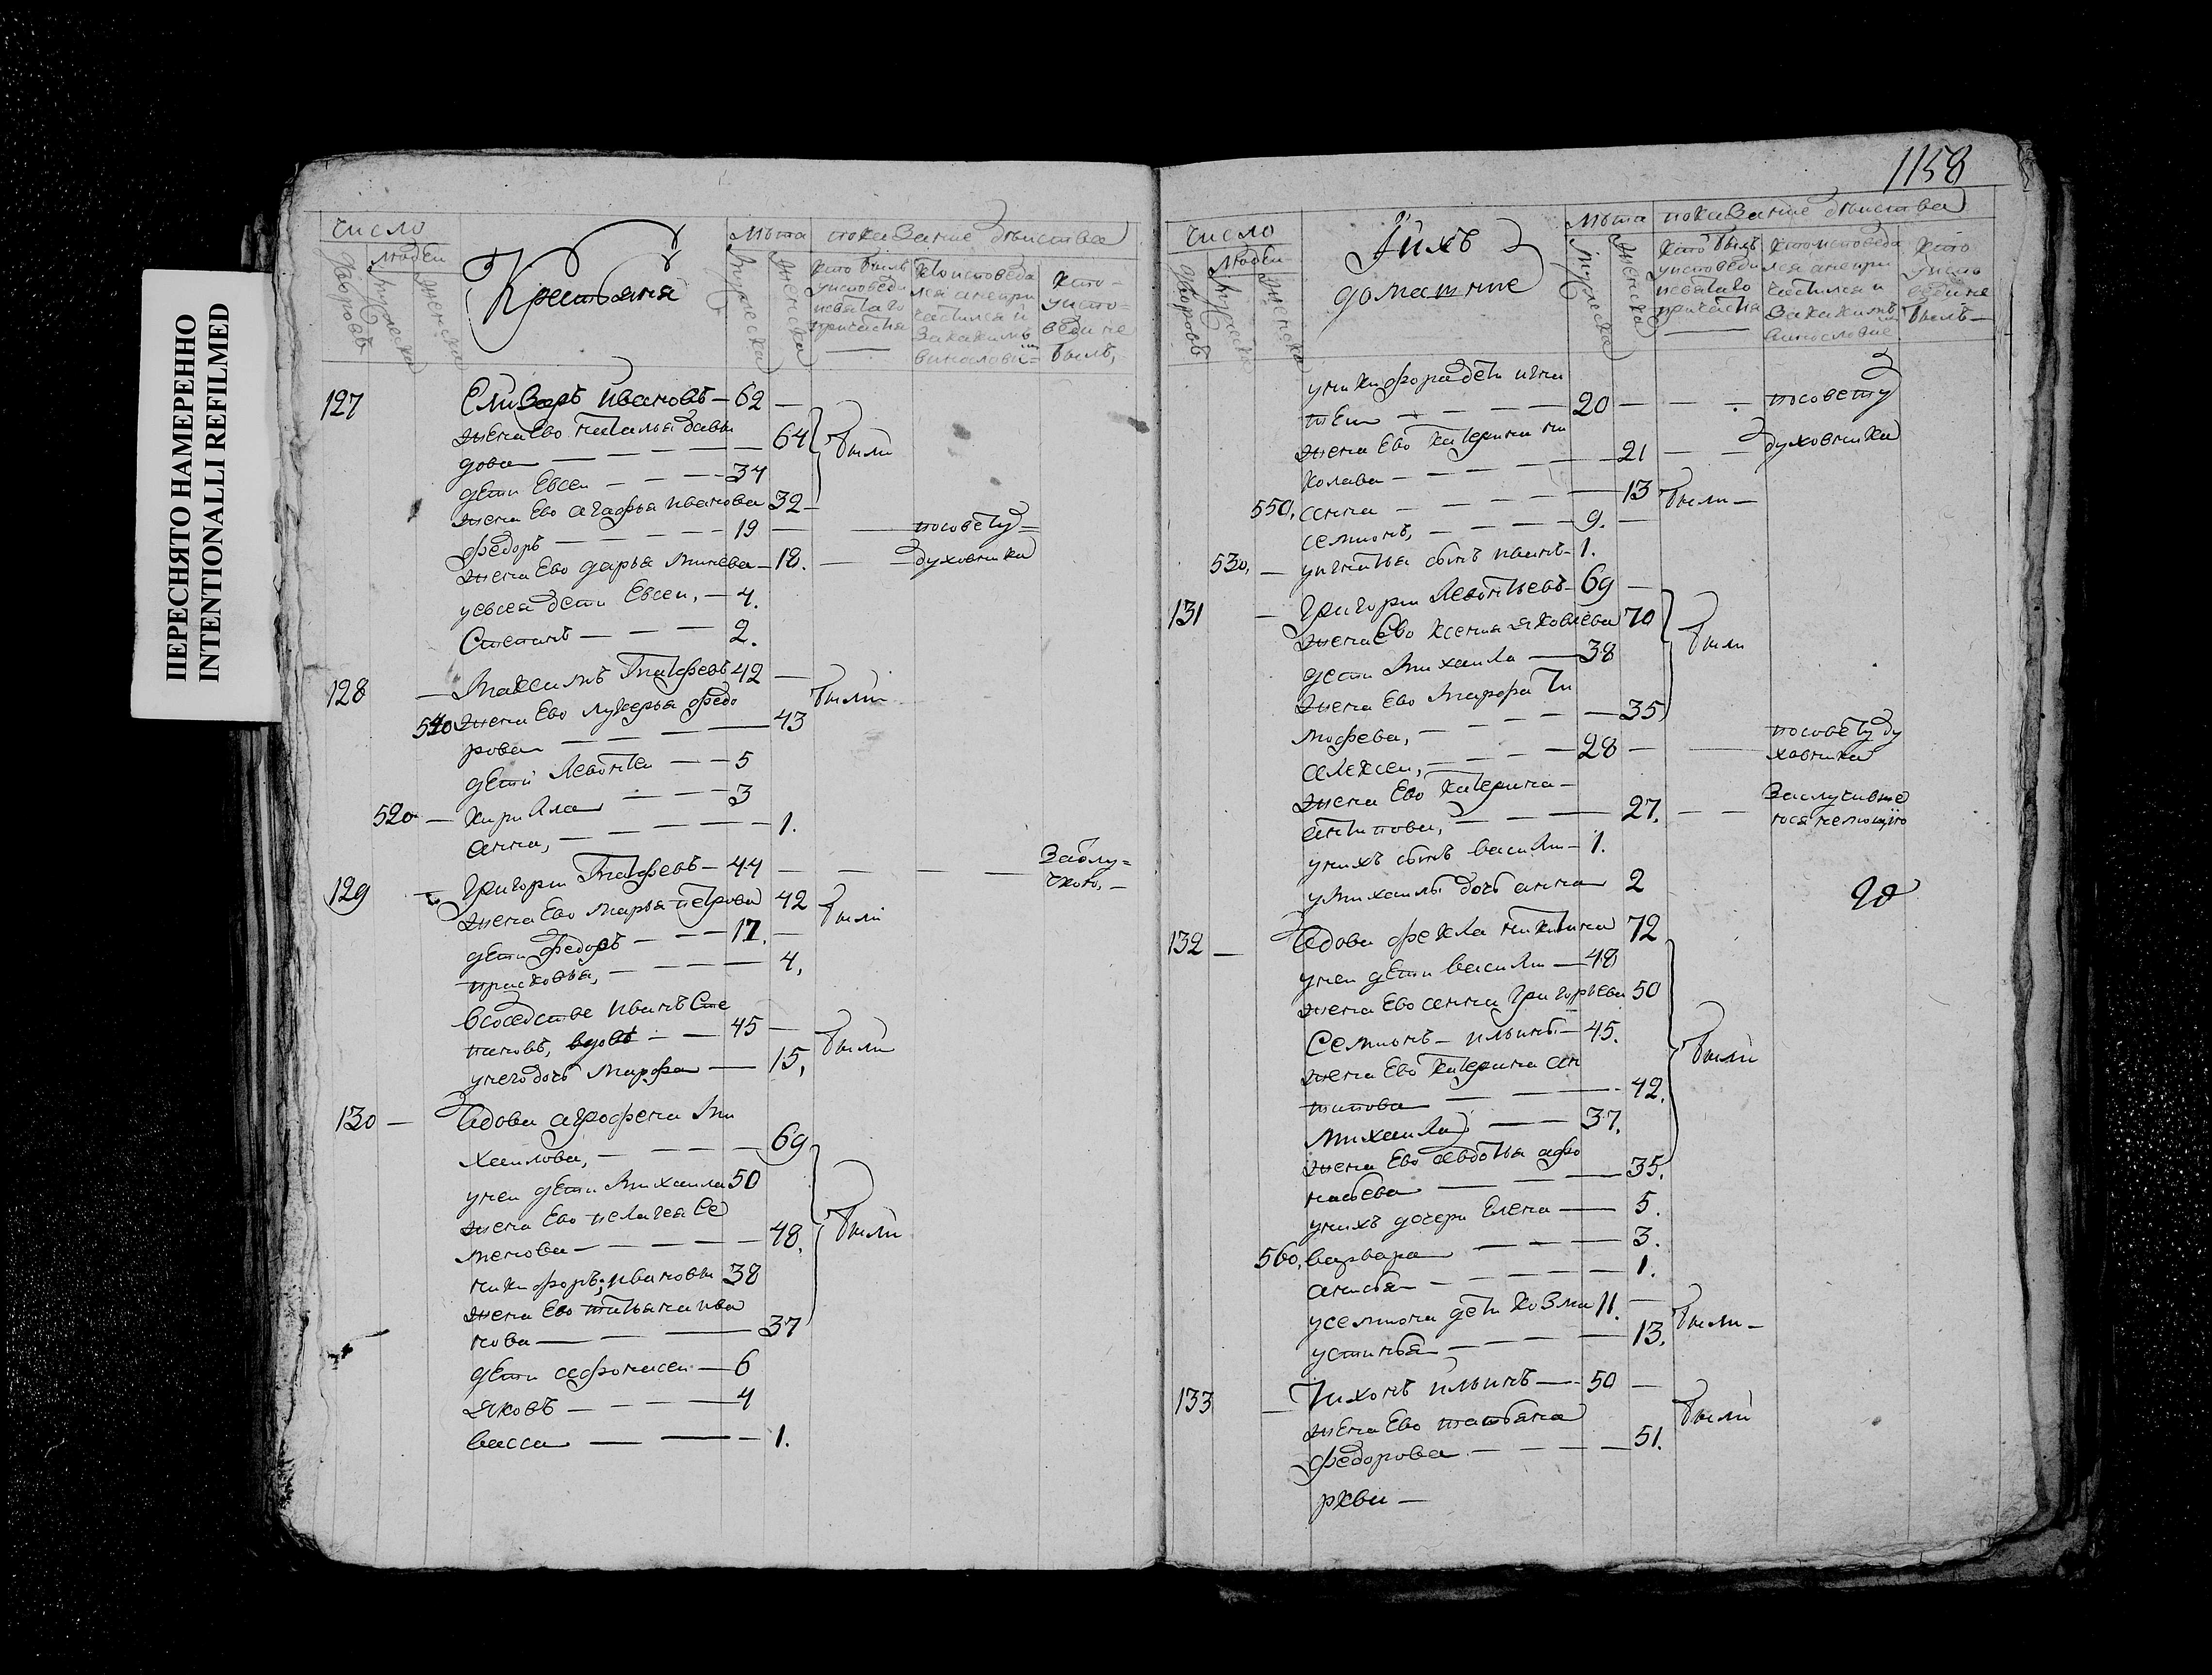 ПЕРЕСНЯТО НАМЕРЕННО
INTENTIONALLI REFILMED
число
людей
дворовъ
мужеска
женска
Крестьяня
лѣта
мужеска
женска
показание дѣиства
кто былъ
уисповеди
исвятаго
причастия
Кто исповеда
лся анепри
частился и
закакимъ
винослови=
кто
уиспо=
веди не
былъ,
127
Елизаръ Ивановъ — 62 —
жена Ево наталья давы
дова — 64
были
дети Евсеи — 34
жена Ево агафья иванова 32
федоръ — 19 — посовету
жена Ево дарья минева — 18. — духовника
уевсея дети Евсеи, — 4.
Степанъ — 2.
128 — Максимъ Матфеевъ 42 —
были
540 жена Ево лукерья федо
рова — 43
дети Левонтеи — 5
520 — Кирила — 3
анна, — 1.
129 Григореи Матфеевъ — 44 — заблу=
жена Ево марья петрова 42
были
дети федоръ — 17. —
прасковья, — 4,
Всоседстве иванъ Сте
пановъ, вдовъ — 45 —
были
унего дочь Марфа — 15,
130 — Вдова агрофена ми
хаилова, — 69
унеи дети Михаила 50
жена Ево пелагея Се
менова — 48.
были
никифоръ, ивановы 38
жена Ево татьяна ива
нова — 37
дети афонасеи — 6
Яковъ — 4
васса — 1.
1158
число
людеи
дворовъ
мужеска
женска
Иихъ
домашние
лѣта
мужеска
женска
показание дѣиства
кто былъ
уисповеди
исвятаго
причастия
Кто исповеда
лся анепри
частился и
закакимъ
винословие
кто
уиспо
веди не
былъ —
уникифора дети игна
теи — 20 — посовету
жена Ево катерина ни
колаева — 21 — духовника
550, анна — 13 были —
семионъ, — 9. —
530, — уигнатья сынъ иванъ — 1.
131 — Григореи Левонтьевъ — 69 —
жена Ево Ксения яковлева 70
дети Михаила — 38
были
жена Ево Марфа Ти
мофеева, — 35
алексеи, — 28 — посовету ду
ховника
жена Ево катерина —
антипова, — 27. — заслучивше
юся немощию
унихъ сынъ василеи — 1.
уМихаилы дочь анна 2
132 — Вдова фекла никитина 72
унеи дети василеи — 48
жена Ево анна григорьева 50
Семионъ — ильинъ — 45.
жена Ево катерина ан
типова — 42.
были
Михаила — 37.
жена Ево авдотья афо
насьева — 35.
унихъ дочери Елена — 5.
560, варвара — 3.
анисья — 1.
усемиона дети козма 11. —
были —
устинья — 13.
133 — Тихонъ ильинъ — 50 —
были
жена Ево татьяна
федорова — 51.
ркви —